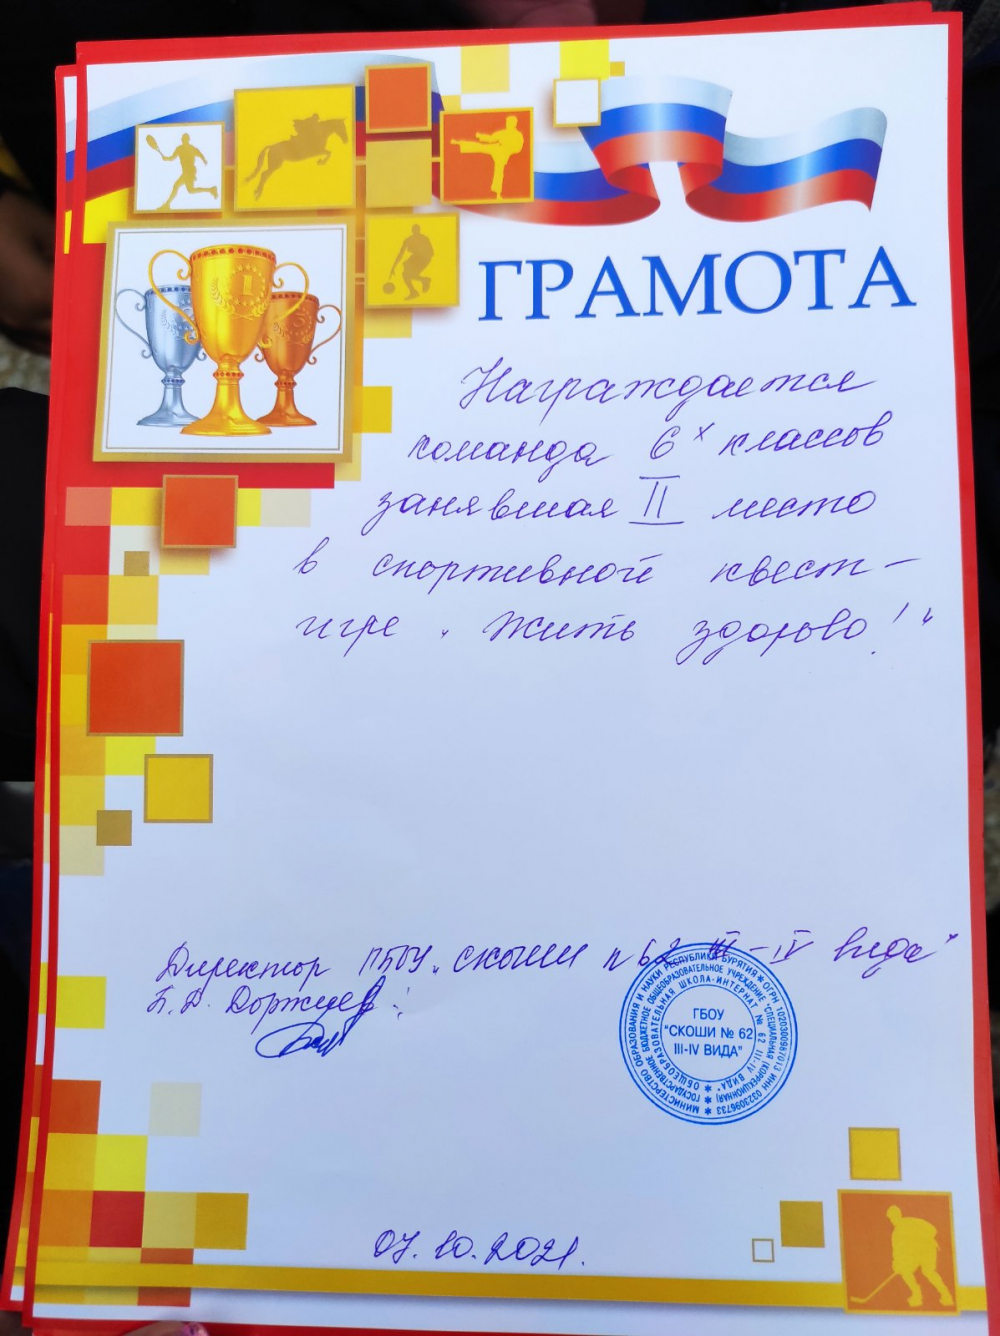 ГРАМОТА
Награждается
команда 6х классов
занявшая II место
в спортивной квест-
игре „Жить здорово!“
Директор ГБОУ „СКОШИ № 62 III-IV вида“
Б.Д. Доржиев
МИНИСТЕРСТВО ОБРАЗОВАНИЯ И НАУКИ РЕСПУБЛИКИ БУРЯТИЯ * ОГРН 1020300987013 ИНН 0323096733 *
ГОСУДАРСТВЕННОЕ БЮДЖЕТНОЕ ОБЩЕОБРАЗОВАТЕЛЬНОЕ УЧРЕЖДЕНИЕ "СПЕЦИАЛЬНАЯ (КОРРЕКЦИОННАЯ)
ОБЩЕОБРАЗОВАТЕЛЬНАЯ ШКОЛА-ИНТЕРНАТ № 62 III-IV ВИДА" *
ГБОУ
"СКОШИ № 62
III-IV ВИДА"
07.10.2021.